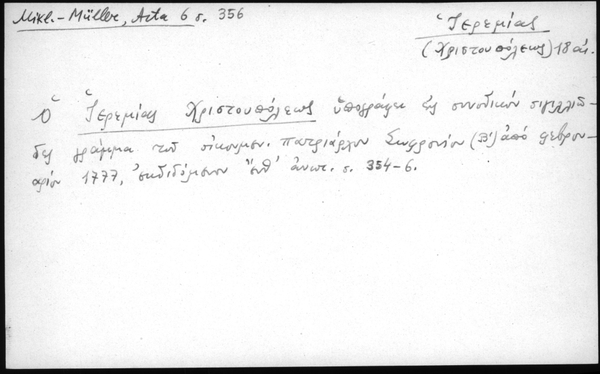 Mikl.-Müller, Acta 6 σ. 356
Ἱερεμίας
(Χριστουπόλεως) 18 αἰ.
Ὁ Ἱερεμίας Χριστουπόλεως ὑπογράφει εἰς συνοδικὸν σιγιλλιῶ-
δες γράμμα τοῦ οἰκουμεν. πατριάρχου Σωφρονίου (Β') ἀπὸ φεβρου-
αρίου 1777, ἐκδιδόμενον ἔνθ' ἀνωτ. σ. 354-6.